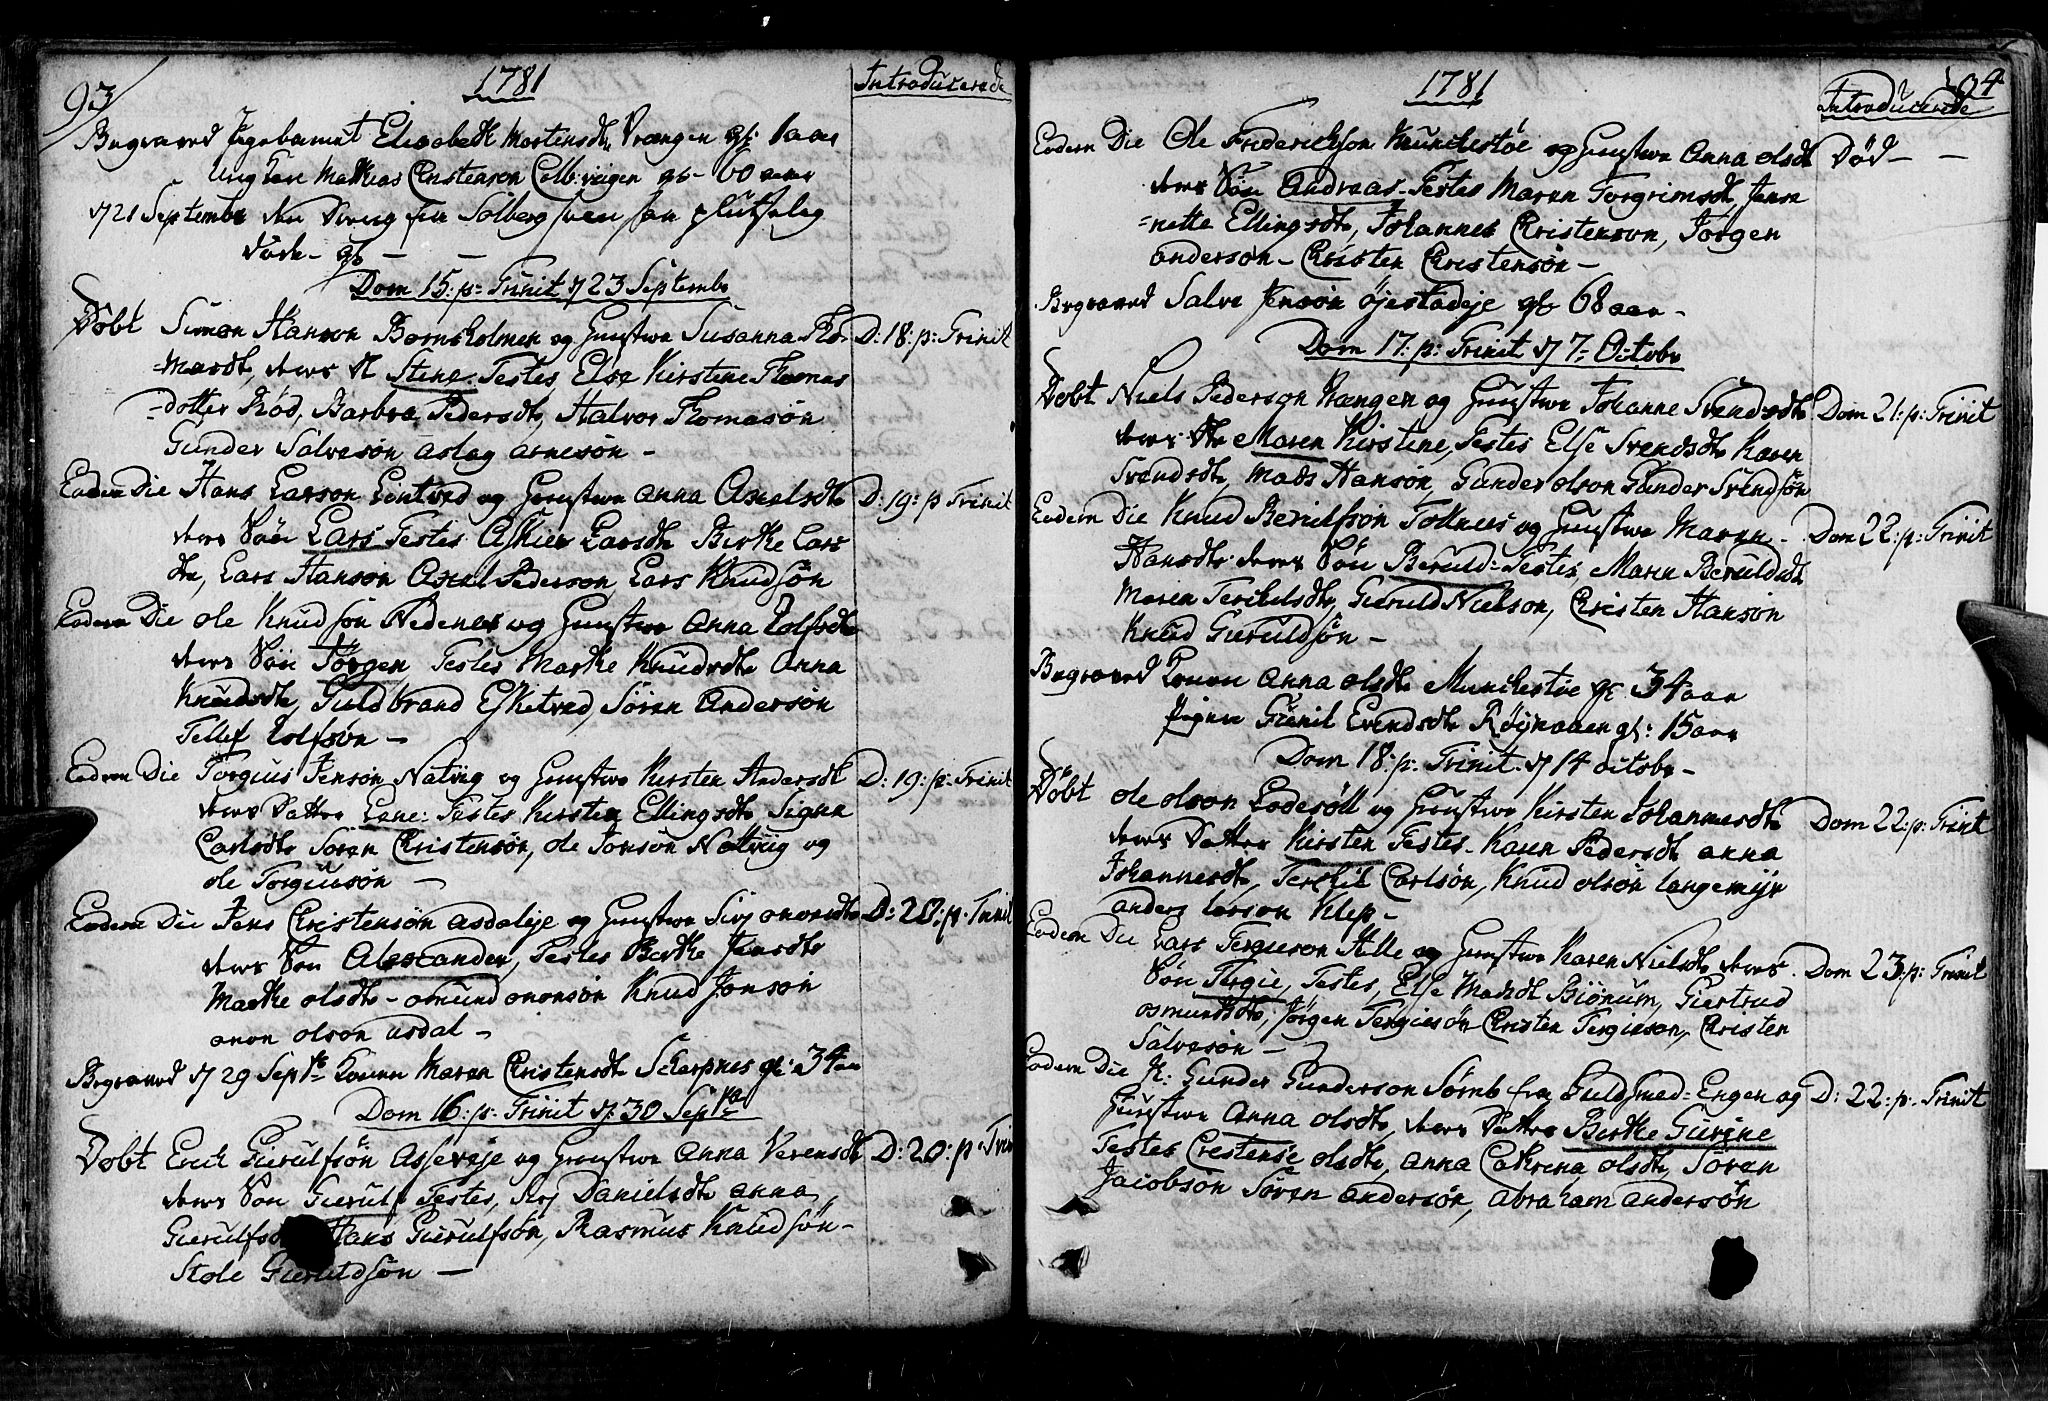 93
1781
Introducerede
Begraved Pigebarnet Elisabeth Mortensdtr Vrængen gl: 1 aar
Ung Karl Mathias Christenson Colb:viigen gl 60 aar
d 21 Septembr den Dreng fra Solberg som saa plutselig
døde - gl - -
Dom 15: p: Trinit d 23 Septembr
Døbt Simon Hanson Bornholmen og Hustrue Susanna Tho- D: 18: p: Trinit
=masdtr, deres Stine. Testes, Else Kirstine Thomas
=dotter Rød, Barbra Pedersdtr, Halvor Thomasøn
Gunder Salvesøn Aslag Arnesøn -
Eodem Die Hans Larson Lentved og Hustrue Anna Axelsdtr D: 19: p Trinit
deres Søn Lars Testes Larsdtr Birthe Lars
dtr, Lars Hanson Axel Pederson, Lars Knudsøn
Eodem Die Ole Knudsøn Nedenes og Hustrue Anna Rolfsdtr
deres Søn Jørgen Testes Marthe Knudsdtr Anna
Knudsdtr, Guldbrand Esketved, Søren Andersøn
Tellef Rolfsøn -
Eodem Die Torgius Jensøn Natvig og Hustrue Kirsten Andersdtr D: 19: p: Trinit
deres Datter Lene: Testes Kirsten Ellingsdtr Signe
Carlsdtr Søren Christensøn, Ole Jonsøn Natvig og
Ole Torgiusøn -
Eodem Die Jens Christensøn Asdaleje og Hustrue Siri Anonsdtr D: 20: p: Trinit
deres Søn Alexander, Testes Birthe Jensdtr
Marthe Olsdtr - Omund Anonsøn Knud Jonson
Anon Olson Asdal -
Begraved d 29 Septbr Konen Maren Christensdtr Scharpnes gl: 34 aar
Dom 16: p: Trinit d: 30 Septbr
Døbt Erich Gierulfsøn Asseveje og Hustrue Anna Verensdtr D: 20: p: Trin
deres Søn Gierulf Testes, Danielsdtr Anna
Gierulfsd Hans Gierulfsøn, Rasmus Knudsøn -
Stole Gieruldsøn -
1781
94
Introducerede
Eodem Die Ole Friderichson Munchestøe og Hustrue Anna Olsdtr Død - -
deres Søn Andreas - Testes Maren Torgrimsdtr, Jense
=nette Ellingsdtr, Johannes Christenson, Jørgen
Anderson - Christen Christensøn -
Begraved Salve Jensøn Øjestadeje gl 68 aar -
Dom 17: p: Trinit d 7 Octobr
Døbt Niels Pederson Vrengen og Hustrue Johanne Svendsdtr Dom 21: p: Trinit
deres Dtr Maren Kirstine, Testes Else Svendsdtr Karen
Svendsdtr, Mads Hansøn, Gunder Olson Gunder Svendsøn
Eodem Die Knud Berulfsøn Tolnes og Hustrue Maren - Dom 22: p: Trinit
Hansdtr deres Søn Beruld - Testes, Maren Beruldsdtr
Maren Terchelsdtr, Gieruld Nielson, Christen Hansøn
Knud Gieruldsøn -
Begraved Konen Anna Olsdtr Munchestøe gl 34 aar
Pigen Gunil Evendsdtr Røjnaaen gl: 15 aar
Dom 18: p: Trinit d 14 Octobr -
Døbt Ole Olson Lodesøll og Hustrue Kirsten Johannesdtr Dom 22: p: Trinit
deres Datter Kirsten Testes - Karen Pedersdtr Anna
Johannesdtr, Terchil Carlsøn, Knud Olsøn Langemyr
Anders Larson Klep -
Eodem Die Lars Tergieson Hille og Hustrue Karen Nielsdtr deres Dom 23: p: Trinit
Søn Tergie, Testes, Else Madsdtr Biønum, Giertrud
Osmundsdtr, Jørgen Tergiesøn Christen Tergieson, Christen
Salvesøn -
Eodem Die H: Gunder Gunderson Sømb fra Guldsmed-Engen og D: 22: p: Trinit
Hustrue Anna Olsdtr, deres Datter Birthe Gurine
Testes Chrestense Olsdtr, Anna Cathrina Olsdtr, Søren
Jacobson Søren Andersøn, Abraham Andersøn